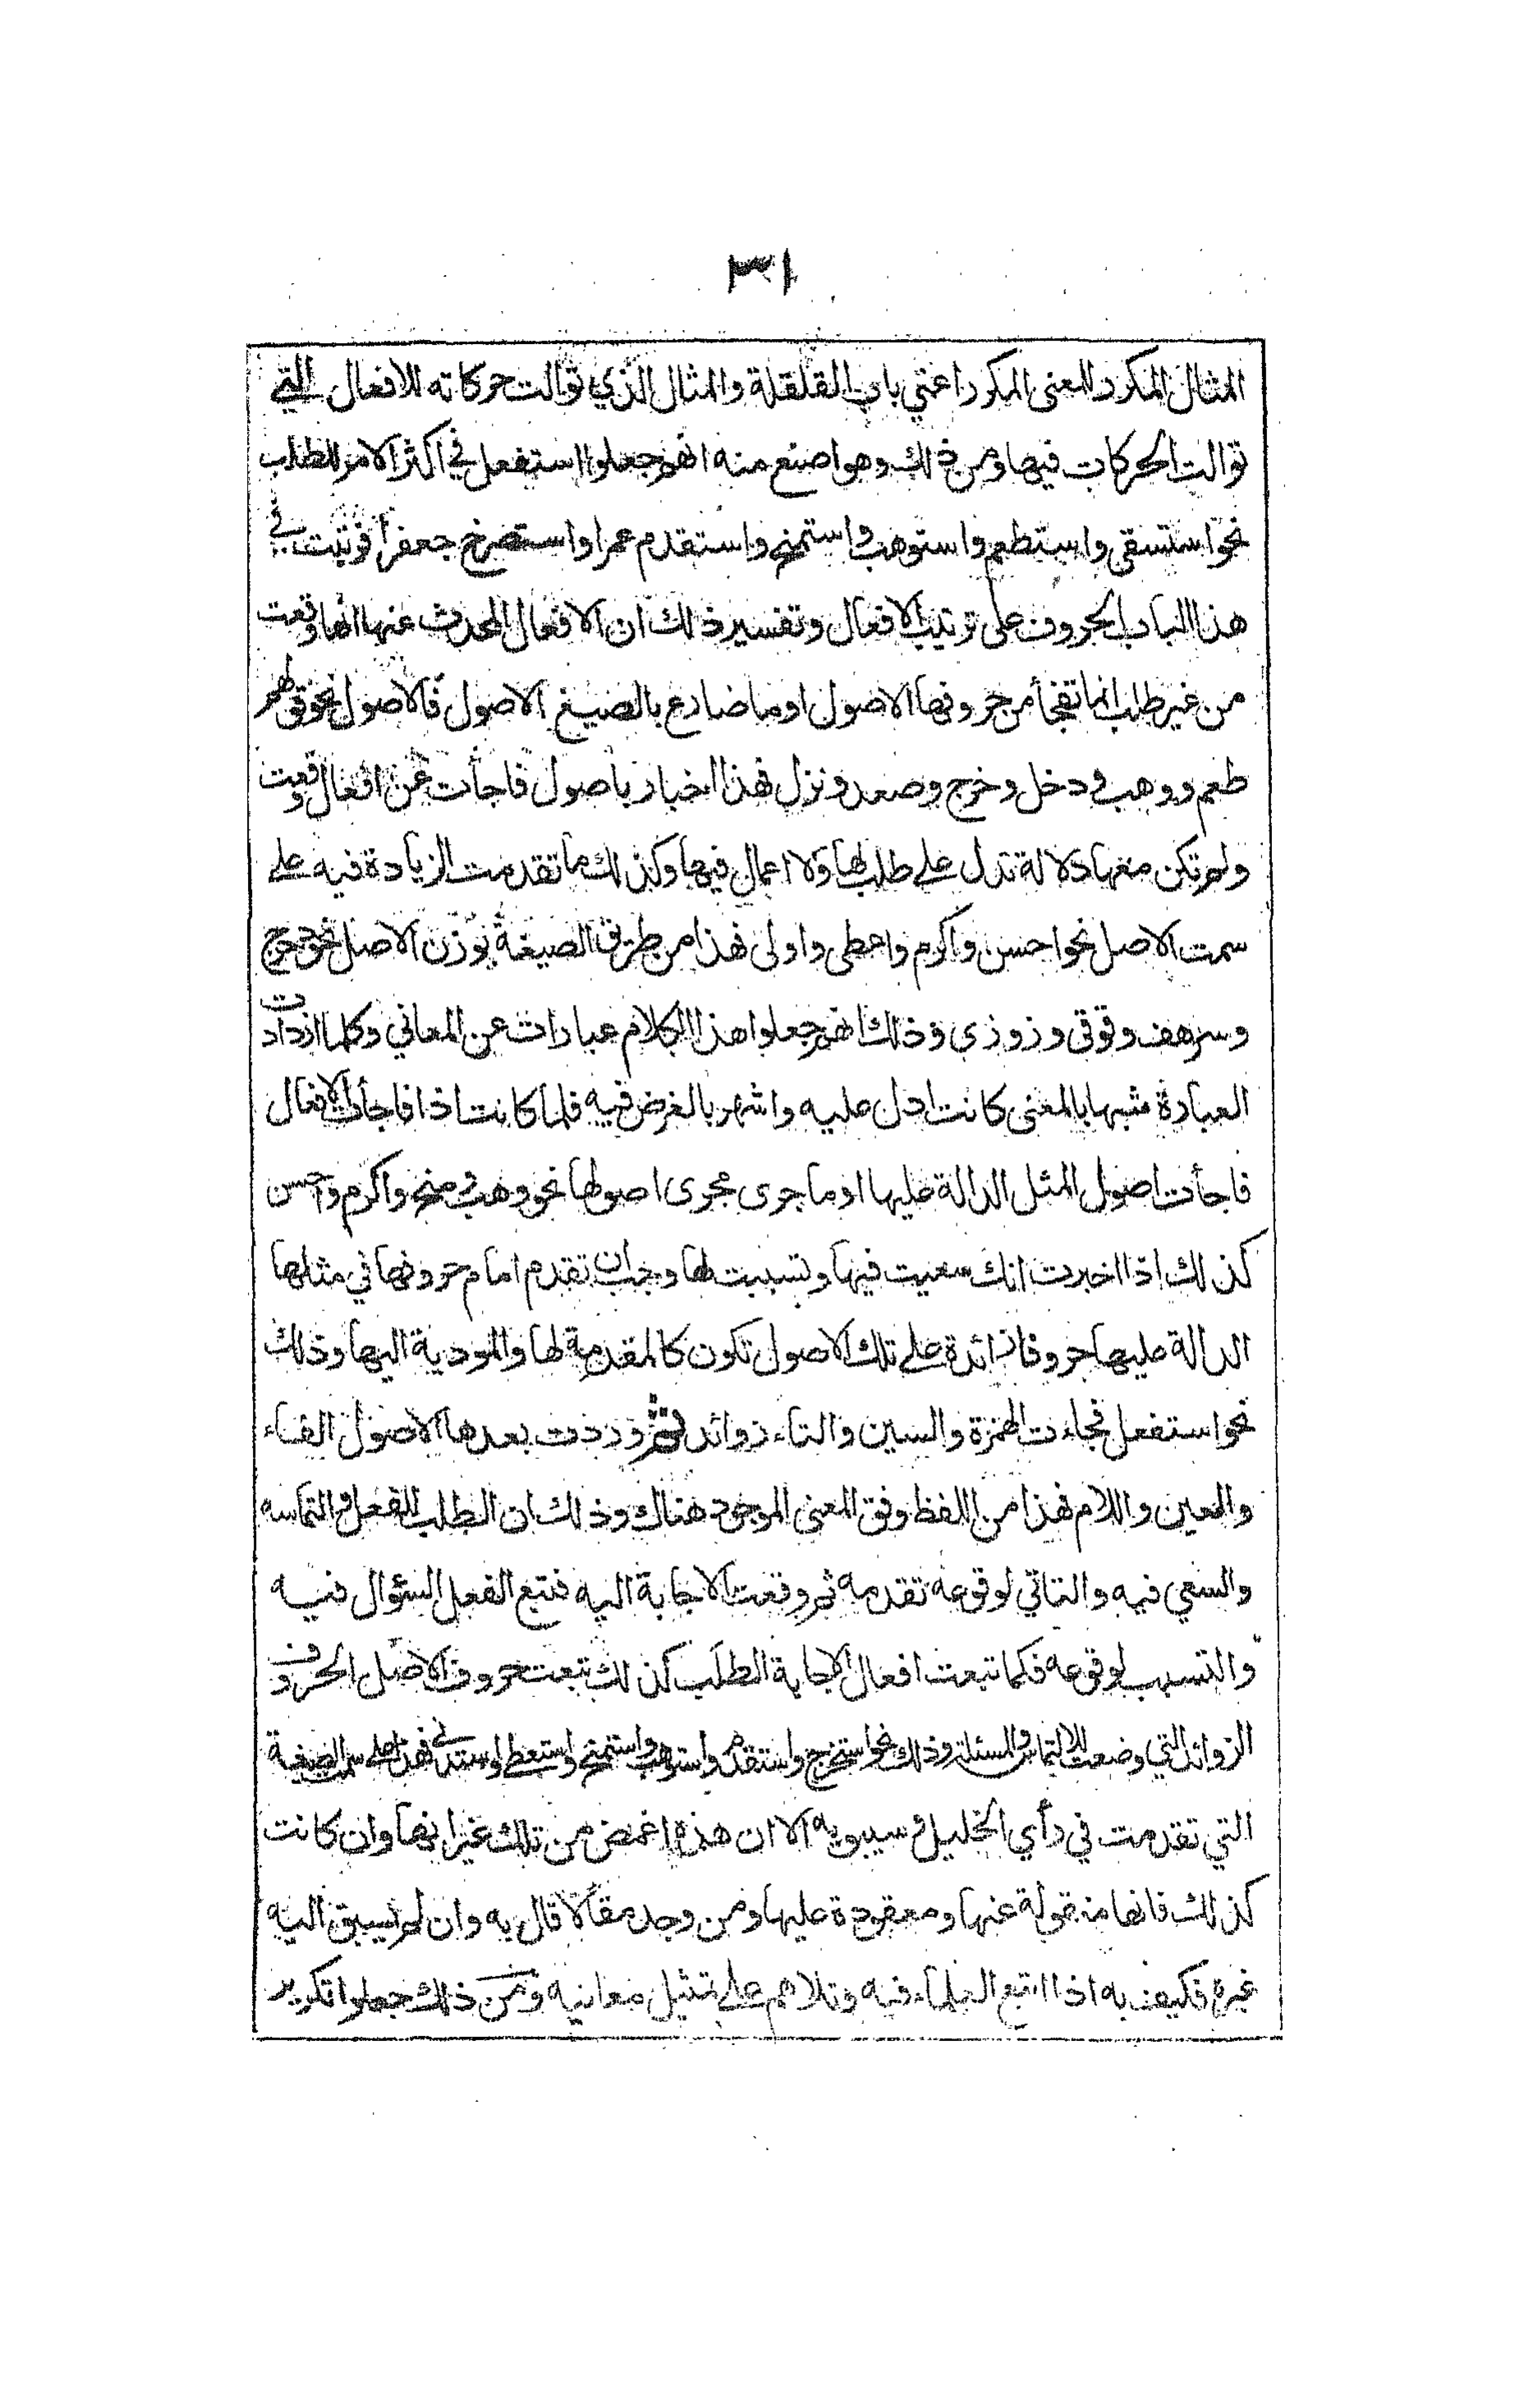 ٣١
المثال المكرر للمعنى المكرر اعني باب القلقلة والمثال الذي توالت حركاته للافعال التي
توالت الحركات فيها ومن ذلك وهو اصنع منه انهم جعلوا استفعل في اكثر الامر للطلب
نحو استسقى واستطعم واستوهب واستمنح واستقدم عمرا واستصرخ جعفرا فرتبت في
هذا الباب الحروف على ترتيب الافعال وتفسير ذلك ان الافعال المحدث عنها انها وقعت
من غير طلب انما تفجأ من حروفها الاصول او ما ضارع بالصيغ الاصول فالاصول نحو قولهم
طعم ووهب ودخل وخرج وصعد ونزل فهذا اخبار باصول فاجأت عن افعال وقعت
ولم تكن معها دلالة تدل على طلب لها ولا اعمال فيها وكذلك ما تقدمت الزيادة فيه على
سمت الاصل نحو احسن واكرم واعطى واولى فهذا من طريق الصيغة بوزن الاصل نحو دحرج
وسرهف وقوقى وزوزى وذلك انهم جعلوا هذا الكلام عبارات عن المعاني وكلما ازدادت
العبارة شبها بالمعنى كانت ادل عليه واشهر بالغرض فيه فلما كانت اذا فاجأت الافعال
فاجأت اصول المثل الدالة عليها او ما جرى مجرى اصولها نحو وهب ومنح واكرم واحسن
كذلك اذا اخبرت انك سعيت فيها وتسببت لها وجب ان تقدم امام حروفها في مثلها
الدالة عليها حروفا زائدة على تلك الاصول تكون كالمقدمة لها والمودية اليها وذلك
نحو استفعل فجاءت الهمزة والسين والتاء زوائد ثم وردت بعدها الاصول الفاء
والعين واللام فهذا من اللفظ وفق المعنى الموجود هناك وذلك ان الطلب للفعل والتماسه
والسعي فيه والتاتي لوقوعه تقدمه ثم وقعت الاجابة اليه فتبع الفعل السؤال فيه
والتسبب لوقوعه فكما تبعت افعال الاجابة الطلب كذلك تبعت حروف الاصل الحروف
الزوائد التي وضعت للالتماس والمسئلة وذلك نحو استخرج واستقدم واستوهب واستمنح واستعطى واستدنى فهذا على سمت الصيغة
التي تقدمت في رأي الخليل وسيبويه الا ان هذه اغمض من تلك غير انها وان كانت
كذلك فانها منقولة عنها ومعقودة عليها ومن وجد مقالا قال به وان لم يسبق اليه
غيره فكيف به اذا اتبع العلماء فيه وتلاهم على تمثيل معانيه ومن ذلك جعلوا تكرير